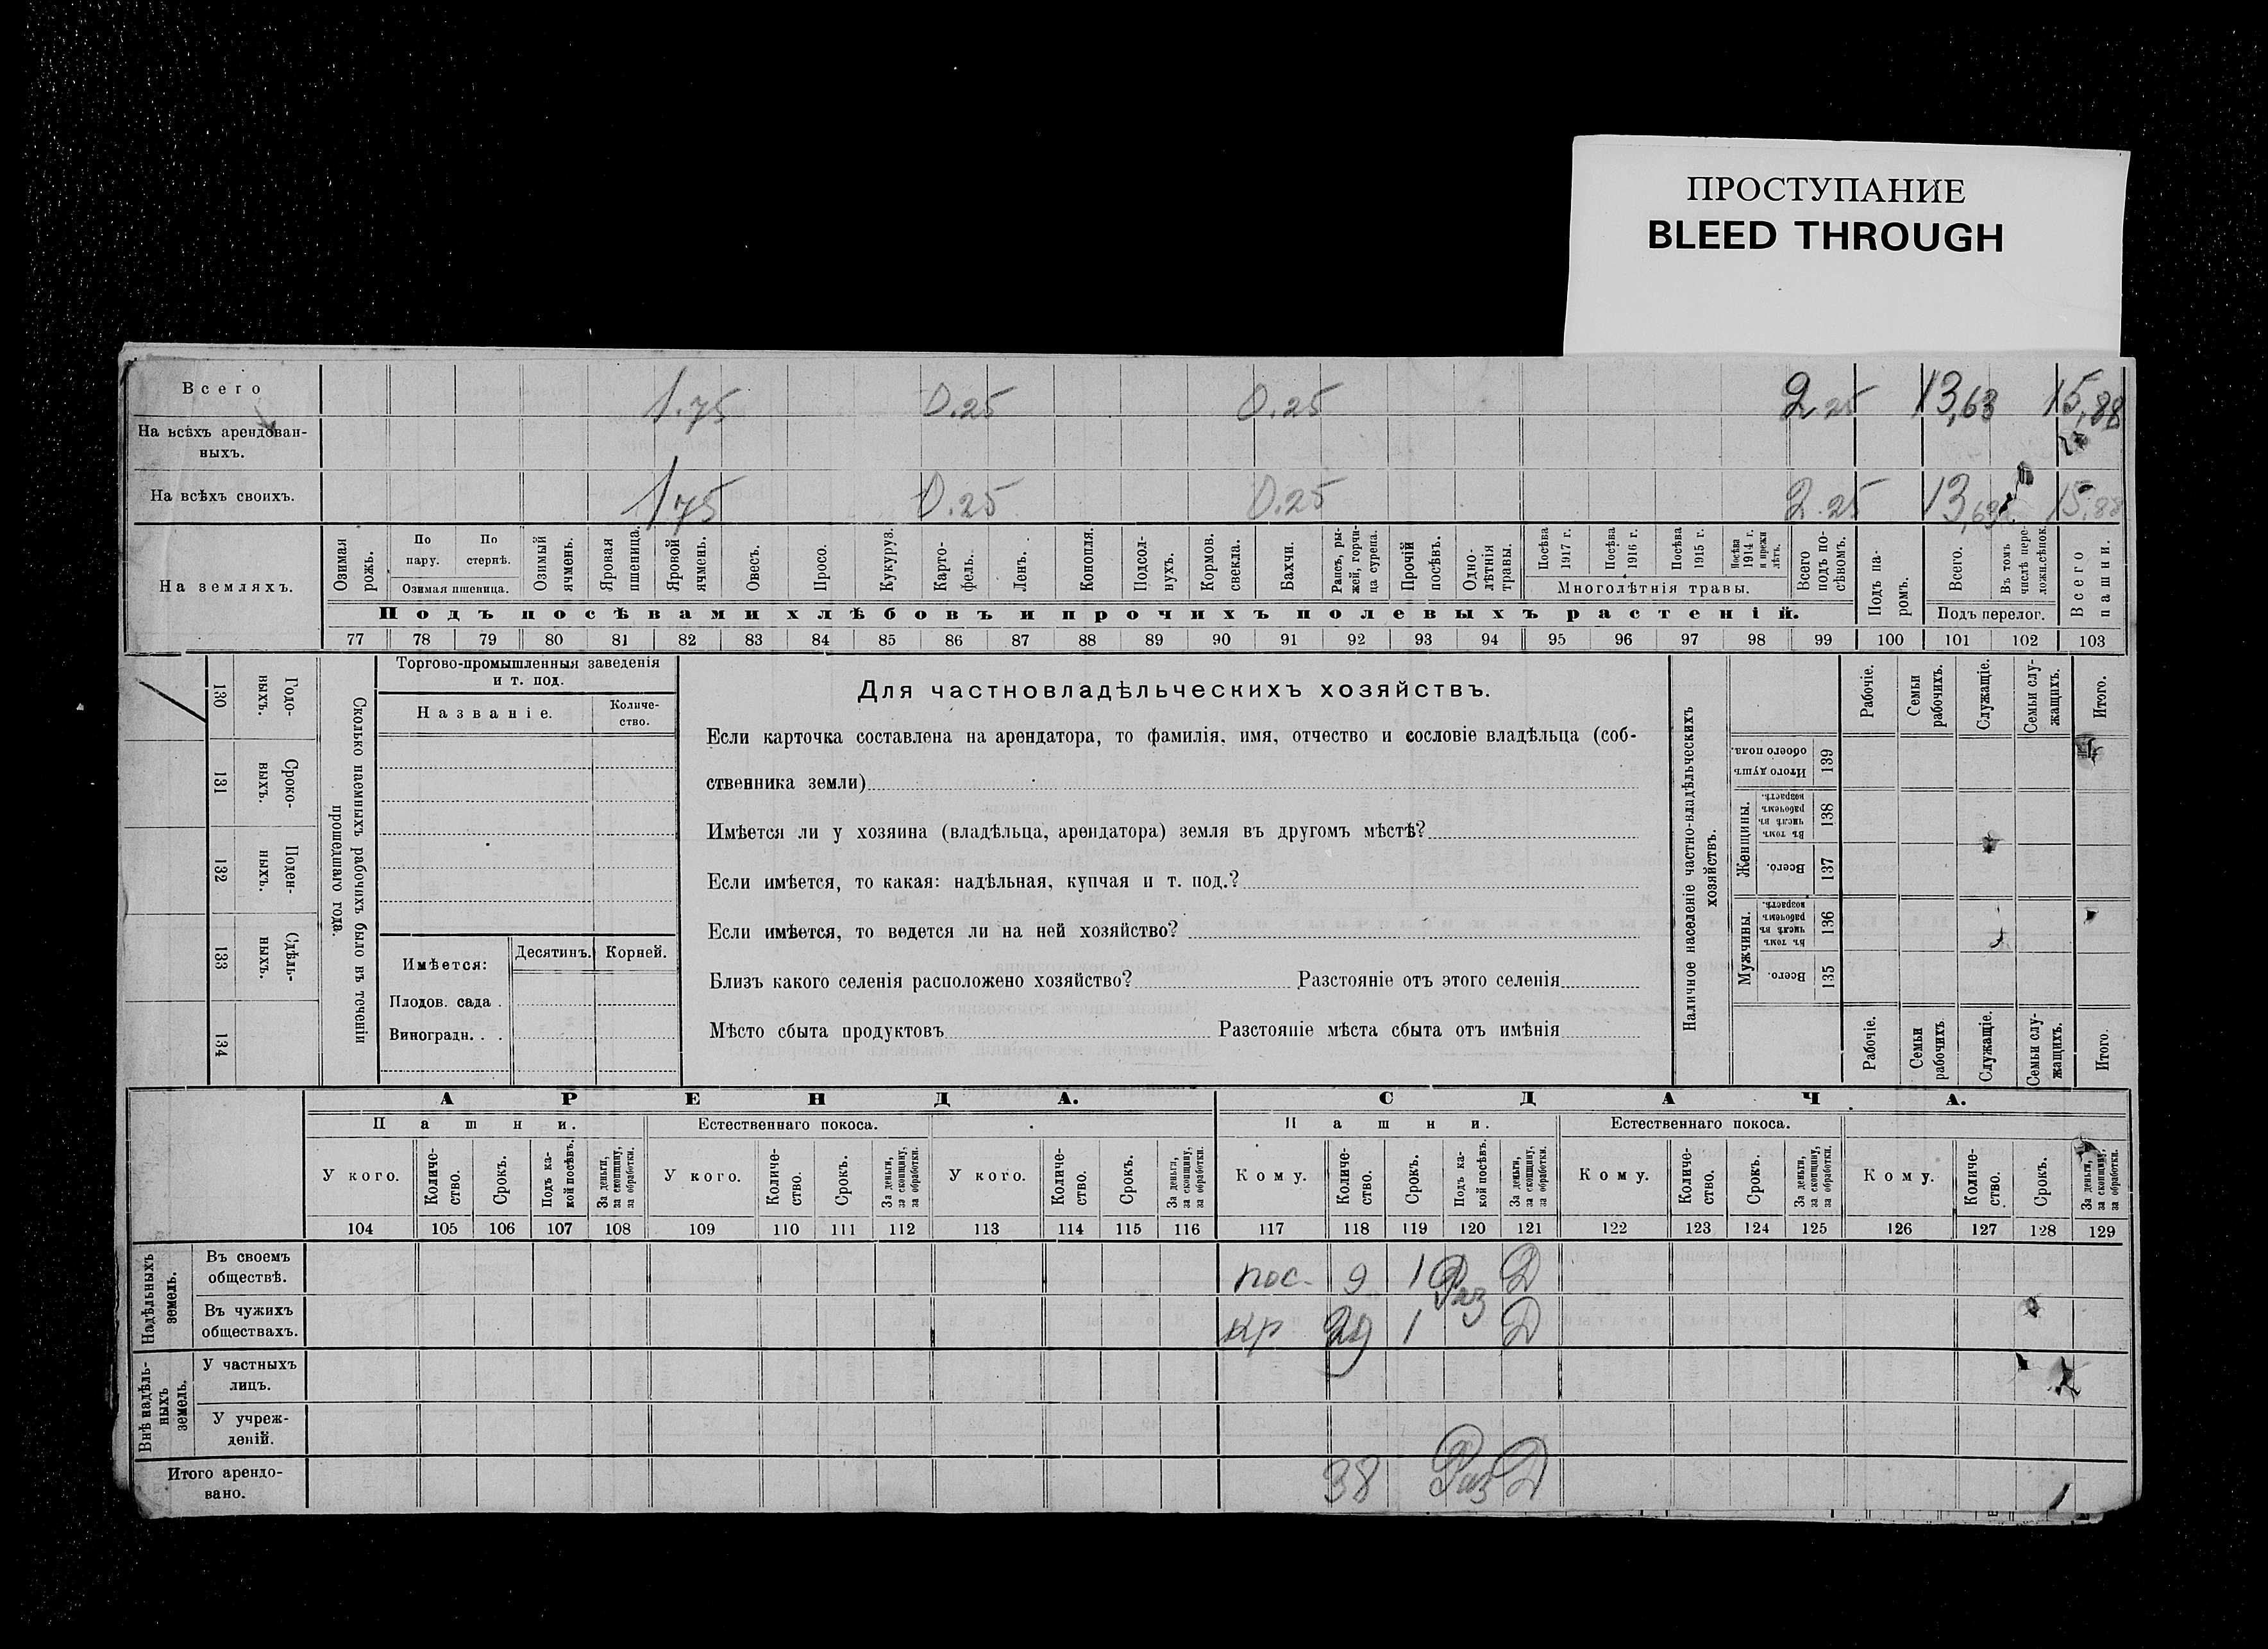 ПРОСТУПАНИЕ
BLEED THROUGH
Всего 1.75 0.25 0.25 2 25 13,63 15,88
На всѣхъ арендован-
ныхъ.
На всѣхъ своихъ. 1 75 0.25 0.25 2.25 13,63 15,88
На земляхъ.
Озимая рожь.
По пару.
По стернѣ.
Озимая пшеница.
Озимый ячмень.
Яровая пшеница.
Яровой ячмень.
Овесъ.
Просо.
Кукуруз.
Карто-
фель.
Ленъ.
Конопля.
Подсол-
нухъ.
Кормов. свекла.
Бахчи.
Рапсъ, ры-
жей, горчи-
ца сурепа.
Прочій посѣвъ.
Одно-
лѣтнія травы.
Посѣва 1917 г.
Посѣва 1916 г.
Посѣва 1915 г.
Посѣва 1914 г. и прежн лѣтъ.
Многолѣтнія травы.
Всего подъ по-
сѣвомъ.
Подъ па-
ромъ.
Всего.
Въ томъ числѣ пере-
ложн.сѣнок.
Подъ перелог.
Всего пашни.
Подъ посѣвами хлѣбовъ и прочихъ полевыхъ растеній.
77 78 79 80 81 82 83 84 85 86 87 88 89 90 91 92 93 94 95 96 97 98 99 100 101 102 103
130 Годо-
ныхъ.
131 Сроко-
ныхъ.
132 Поден-
ныхъ.
133 Сдѣль-
ныхъ.
134
Сколько наемныхъ рабочихъ было въ теченіи
прошедшаго года.
Торгово-промышленныя заведенія
и т. под.
Названіе.
Количе-
ство.
Имѣется:
Десятинъ.
Корней.
Плодов. сада .
Виноградн. . .
Для частновладѣльческихъ хозяйствъ.
Если карточка составлена на арендатора, то фамилія, имя, отчество и сословіе владѣльца (соб-
ственника земли)
Имѣется ли у хозяина (владѣльца, арендатора) земля въ другомъ мѣстѣ?
Если имѣется, то какая: надѣльная, купчая и т. под.?
Если имѣется, то ведется ли на ней хозяйство?
Близъ какого селенія расположено хозяйство? Разстояніе отъ этого селенія
Мѣсто сбыта продуктовъ Разстояніе мѣста сбыта отъ имѣнія
Наличное населеніе частно-владѣльческихъ
хозяйствъ.
Рабочіе.
Семьи рабочихъ.
Служащіе.
Семьи слу-
жащихъ.
Итого.
Итого душъ обоего пола. 139
Женщины.
Въ томъ числѣ въ рабочемъ возрастѣ. 138
Всего. 137
Мужчины.
Въ томъ числѣ въ рабочемъ возрастѣ. 136
Всего. 135
Рабочіе.
Семьи рабочихъ
Служащіе.
Семьи слу-
жащихъ.
Итого.
АРЕНДА.
СДАЧА.
Пашни.
Естественнаго покоса.
Пашни.
Естественнаго покоса.
У кого.
Количе-
ство.
Срокъ.
Подъ ка-
кой посѣвъ.
За деньги, за скопщину, за обработки.
У кого.
Количе-
ство.
Срокъ.
За деньги, за скопщину, за обработки.
У кого.
Количе-
ство.
Срокъ.
За деньги, за скопщину, за обработки.
Кому.
Количе-
ство.
Срокъ.
Подъ ка-
кой посѣвъ.
За деньги, за скопщину, за обработки.
Кому.
Количе-
ство.
Срокъ.
За деньги, за скопщину, за обработки.
Кому.
Количе-
ство.
Срокъ.
За деньги, за скопщину, за обработки.
104 105 106 107 108 109 110 111 112 113 114 115 116 117 118 119 120 121 122 123 124 125 126 127 128 129
Надѣльныхъ земель.
Въ своемъ
обществѣ. пос. 9 1 Раз Д
Въ чужихъ
обществахъ. кр 29 1 Д
Внѣ надѣль-
ныхъ земель.
У частныхъ
лицъ.
У учреж-
деній.
Итого арендо-
вано. 38 Раз Д